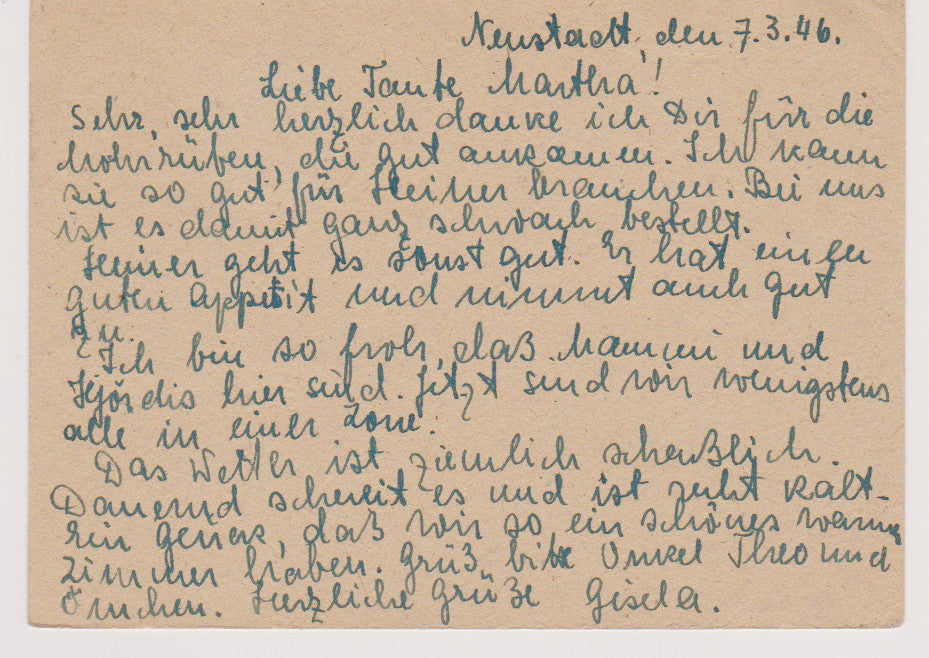 Neustadt, den 7.3.46.
Liebe Tante Martha!
Sehr, sehr herzlich danke ich Dir für die
Mohrrüben, die gut ankamen. Ich kann
sie so gut für Heiner brauchen. Bei uns
ist es damit ganz schwach bestellt.
Heiner geht es sonst gut. Er hat einen
guten Appetit und nimmt auch gut
zu.
Ich bin so froh, daß Mammi und
Hjördis hier sind. Jetzt sind wir wenigstens
alle in einer Zone.
Das Wetter ist ziemlich scheußlich.
Dauernd schneit es und ist recht kalt.
Ein Glück, daß wir so ein schönes warmes
Zimmer haben. Grüß bitte Onkel Theo und
Ömchen. Herzliche Grüße Gisela.